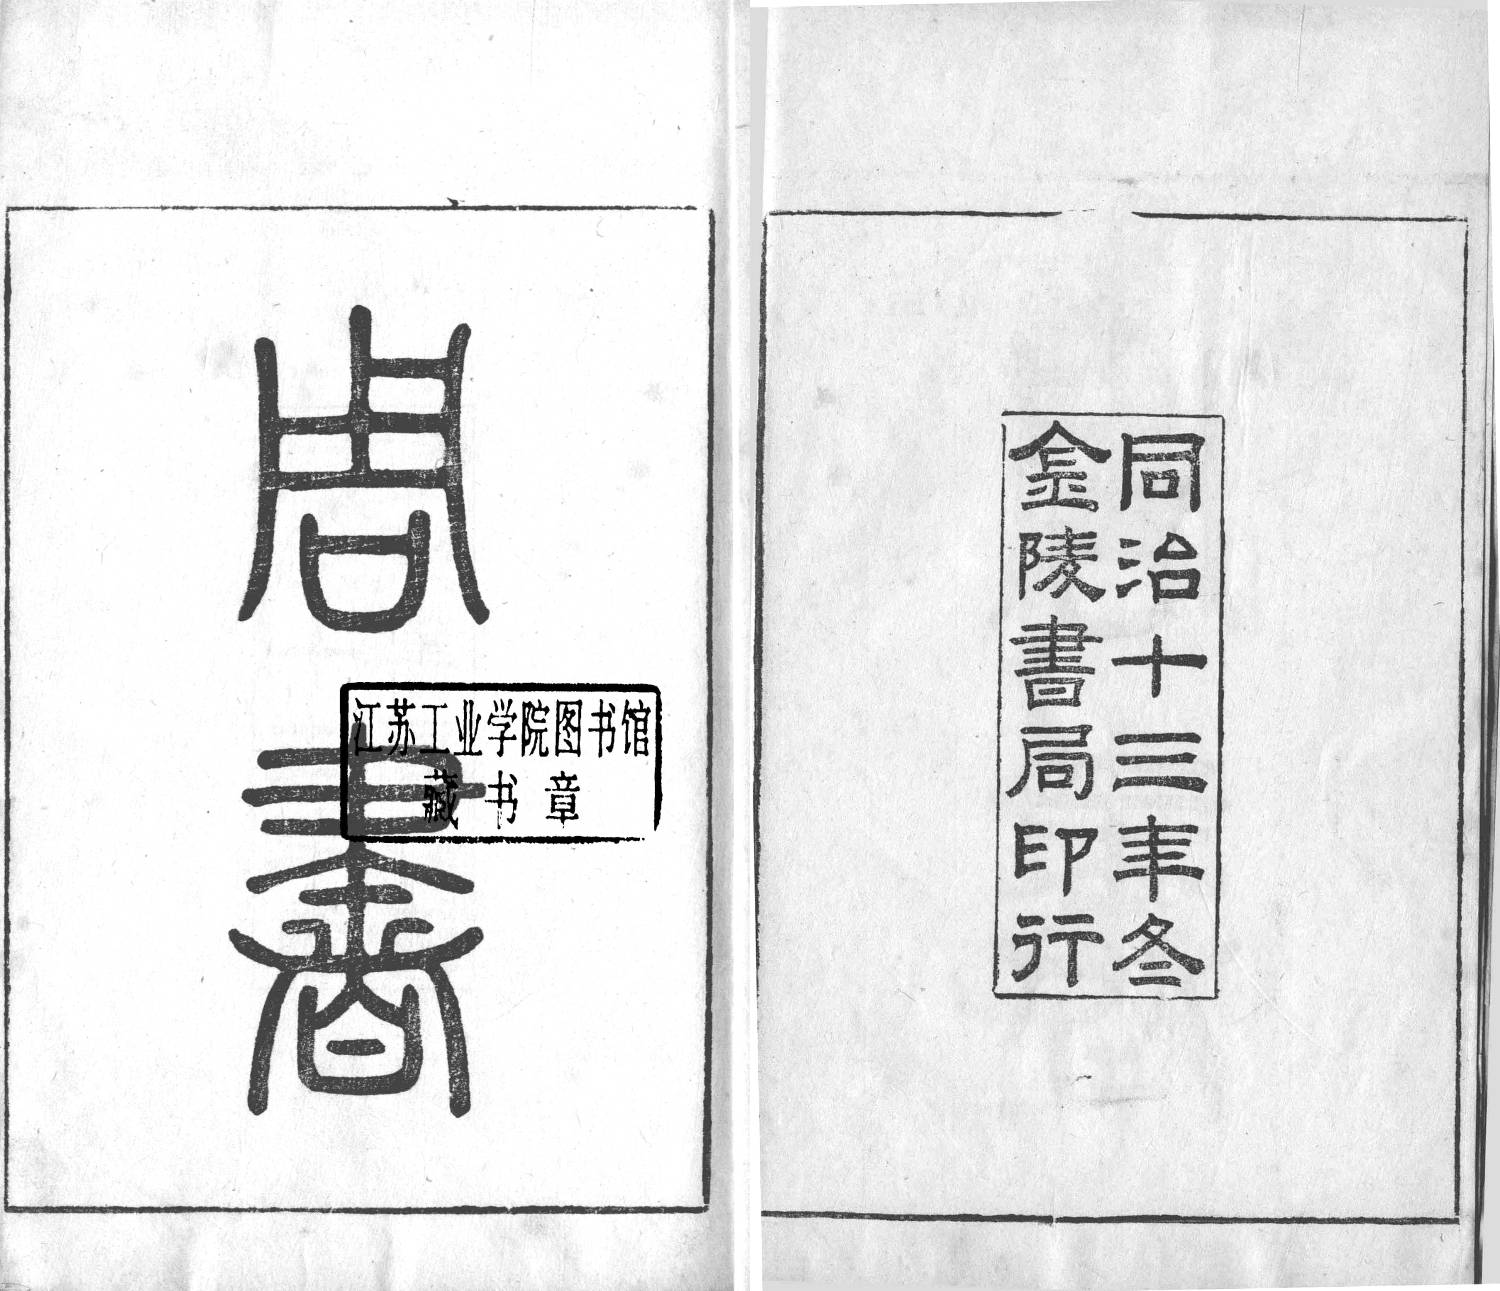 周書
江苏工业学院图书馆
藏书章
同治十三年冬
金陵書局印行